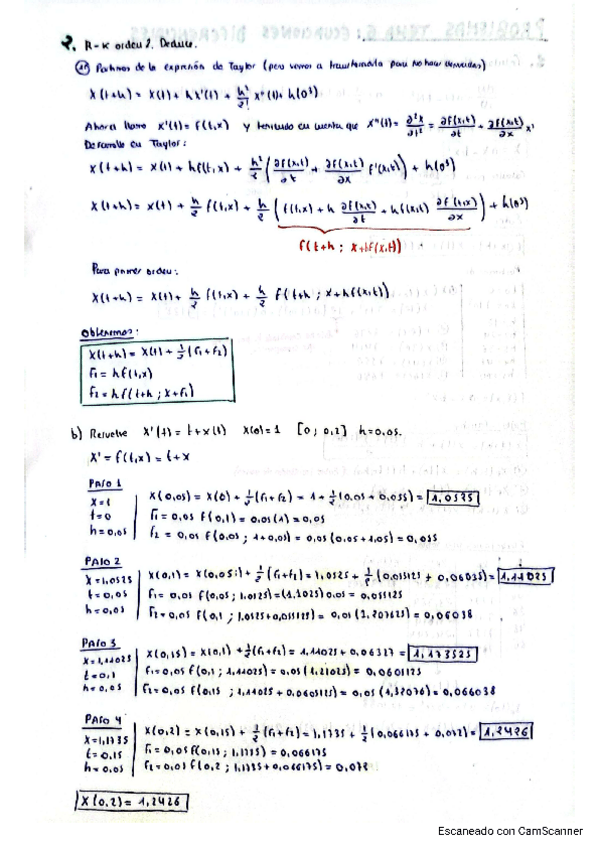 2. R-K orden 2. Deduce.
Partimos de la expresión de Taylor (pero vamos a transformarla para no hacer derivadas)
X(t+h) = X(t) + h x'(t) + h²/2! x''(t) + h(0³)
Ahora llamo x'(t) = f(t,x) y teniendo en cuenta que x''(t) = ∂²x/∂t² = ∂f(x,t)/∂t + ∂f(x,t)/∂x x'
Desarrollo en Taylor:
X(t+h) = x(t) + hf(t,x) + h²/2 (∂f(x,t)/∂t + ∂f(x,t)/∂x f'(x,t)) + h(0³)
X(t+h) = x(t) + h/2 f(t,x) + h/2 (f(t,x) + h ∂f(x,t)/∂t + hf(x,t) ∂f(t,x)/∂x) + h(0³)
f(t+h ; x+hf(x,t))
Para primer orden:
X(t+h) = X(t) + h/2 f(t,x) + h/2 f(t+h ; x+hf(x,t))
Obtenemos:
X(t+h) = X(t) + 1/2 (F1+F2)
F1 = hf(t,x)
F2 = hf(t+h ; x+F1)
b) Resuelve X'(t) = t+x(t) X(0)=1 [0 ; 0,2] h=0,05.
X' = f(t,x) = t+x
PASO 1
X=1
t=0
h=0,05
X(0,05) = X(0) + 1/2 (F1+F2) = 1 + 1/2 (0,05 + 0,055) = 1,0525
F1 = 0,05 f(0,1) = 0,05(1) = 0,05
F2 = 0,05 f(0,05 ; 1+0,05) = 0,05 (0,05+1,05) = 0,055
PASO 2
X=1,0525
t=0,05
h=0,05
X(0,1) = X(0,05) + 1/2 (F1+F2) = 1,0525 + 1/2 (0,055125 + 0,06038) = 1,11025
F1 = 0,05 f(0,05 ; 1,0525) = (1,1025) 0,05 = 0,055125
F2 = 0,05 f(0,1 ; 1,0525+0,055125) = 0,05 (1,207625) = 0,06038
PASO 3
X=1,11025
t=0,1
h=0,05
X(0,15) = X(0,1) + 1/2 (F1+F2) = 1,11025 + 0,06327 = 1,173525
F1 = 0,05 f(0,1 ; 1,11025) = 0,05 (1,21025) = 0,0605125
F2 = 0,05 f(0,15 ; 1,11025 + 0,0605125) = 0,05 (1,32076) = 0,066038
PASO 4
X=1,1735
t=0,15
h=0,05
X(0,2) = X(0,15) + 1/2 (F1+F2) = 1,1735 + 1/2 (0,066175 + 0,072) = 1,2426
F1 = 0,05 f(0,15 ; 1,1735) = 0,066175
F2 = 0,05 f(0,2 ; 1,1735 + 0,066175) = 0,072
X(0,2) = 1,2426
Escaneado con CamScanner